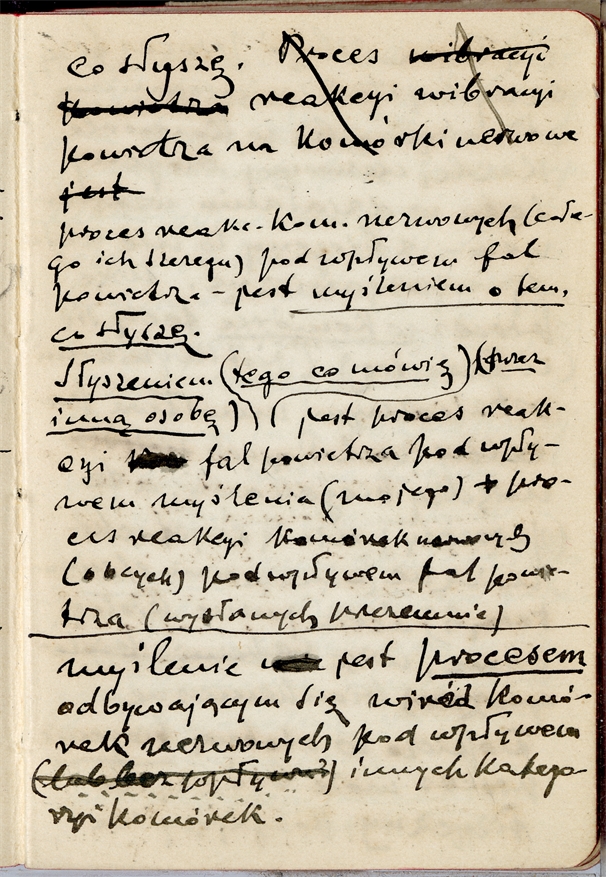 co słyszę. Proces wibracyi
powietrza reakcyi wibracyi
powietrza na komórki nerwowe
jest
proces reakc. kom. nerwowych (całe-
go ich szeregu) pod wpływem fal
powietrza - jest myśleniem o tem,
co słyszę.
Słyszeniem (tego co mówię) (przez
inną osobę) ( jest proces reak-
cyi fal powietrza pod wpły-
wem myślenia (mojego) + pro-
ces reakcyi komórek nerwowych
(obcych) pod wpływem fal powie-
trza (wysłanych przezemnie)
myślenie jest procesem
odbywającym się wśród komó-
rek nerwowych pod wpływem
(lub bez wpływu) innych katego-
ryi komórek.